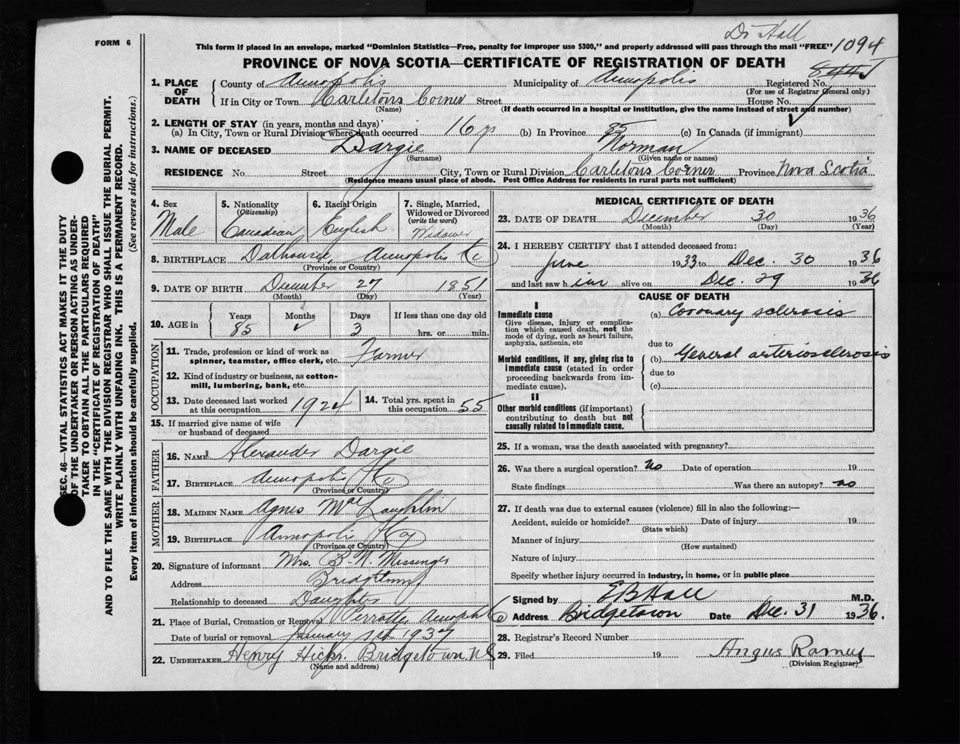 Dr Hall
FORM 6
This form if placed in an envelope, marked "Dominion Statistics—Free, penalty for improper use $300," and properly addressed will pass through the mail "FREE" 1094
PROVINCE OF NOVA SCOTIA—CERTIFICATE OF REGISTRATION OF DEATH
1. PLACE OF DEATH County of Annapolis Municipality of Annapolis Registered No.
(For use of Registrar General only)
If in City or Town Carletons Corner Street House No.
(Name) (If death occurred in a hospital or institution, give the name instead of street and number)
2. LENGTH OF STAY (in years, months and days)
(a) In City, Town or Rural Division where death occurred 16 (b) In Province 85 (c) In Canada (if immigrant)
3. NAME OF DECEASED Dargie Norman
(Surname) (Given name or names)
RESIDENCE No. Street City, Town or Rural Division Carletons Corner Province Nova Scotia
(Residence means usual place of abode. Post Office Address for residents in rural parts not sufficient)
4. Sex 5. Nationality (Citizenship) 6. Racial Origin 7. Single, Married, Widowed or Divorced (write the word)
Male Canadian English Widower
8. BIRTHPLACE Dalhousie Annapolis Co
(Province or Country)
9. DATE OF BIRTH December 27 1851
(Month) (Day) (Year)
10. AGE in Years Months Days If less than one day old
85 3 hrs. or min.
OCCUPATION
11. Trade, profession or kind of work as spinner, teamster, office clerk, etc. Farmer
12. Kind of industry or business, as cotton-mill, lumbering, bank, etc.
13. Date deceased last worked at this occupation 1924 14. Total yrs. spent in this occupation 55
15. If married give name of wife or husband of deceased
FATHER
16. Name Alexander Dargie
17. BIRTHPLACE Annapolis Co
(Province or Country)
MOTHER
18. MAIDEN NAME Agnes MacLaughlin
19. BIRTHPLACE Annapolis Co
(Province or Country)
20. Signature of informant Mrs. B. N. Messinger
Address Bridgetown
Relationship to deceased Daughter
21. Place of Burial, Cremation or Removal Perrotte Annap Co
Date of burial or removal January 1st 1937
22. UNDERTAKER Henry Hicks. Bridgetown, NS
(Name and address)
MEDICAL CERTIFICATE OF DEATH
23. DATE OF DEATH December 30 1936
(Month) (Day) (Year)
24. I HEREBY CERTIFY that I attended deceased from:
June 1933 to Dec. 30 1936
and last saw h im alive on Dec. 29 1936
CAUSE OF DEATH
I
Immediate cause (a) Coronary sclerosis
Give disease, injury or complication which caused death, not the mode of dying, such as heart failure, asphyxia, asthenia, etc
due to
Morbid conditions, if any, giving rise to immediate cause (stated in order proceeding backwards from immediate cause).
(b) General arteriosclerosis
due to
(c)
II
Other morbid conditions (if important) contributing to death but not causally related to immediate cause.
25. If a woman, was the death associated with pregnancy?
26. Was there a surgical operation? no Date of operation 19
State findings Was there an autopsy? no
27. If death was due to external causes (violence) fill in also the following:—
Accident, suicide or homicide? Date of injury 19
(State which)
Manner of injury
(How sustained)
Nature of injury
Specify whether injury occurred in industry, in home, or in public place
Signed by E B Hall M.D.
Address Bridgetown Date Dec. 31 1936.
28. Registrar's Record Number
29. Filed 19 Angus Ramey
(Division Registrar)
SEC. 46—VITAL STATISTICS ACT MAKES IT THE DUTY
OF THE UNDERTAKER OR PERSON ACTING AS UNDER-
TAKER TO OBTAIN ALL THE PARTICULARS REQUIRED
IN THE "CERTIFICATE OF REGISTRATION OF DEATH"
AND TO FILE THE SAME WITH THE DIVISION REGISTRAR WHO SHALL ISSUE THE BURIAL PERMIT.
WRITE PLAINLY WITH UNFADING INK. THIS IS A PERMANENT RECORD.
Every item of information should be carefully supplied. (See reverse side for instructions.)